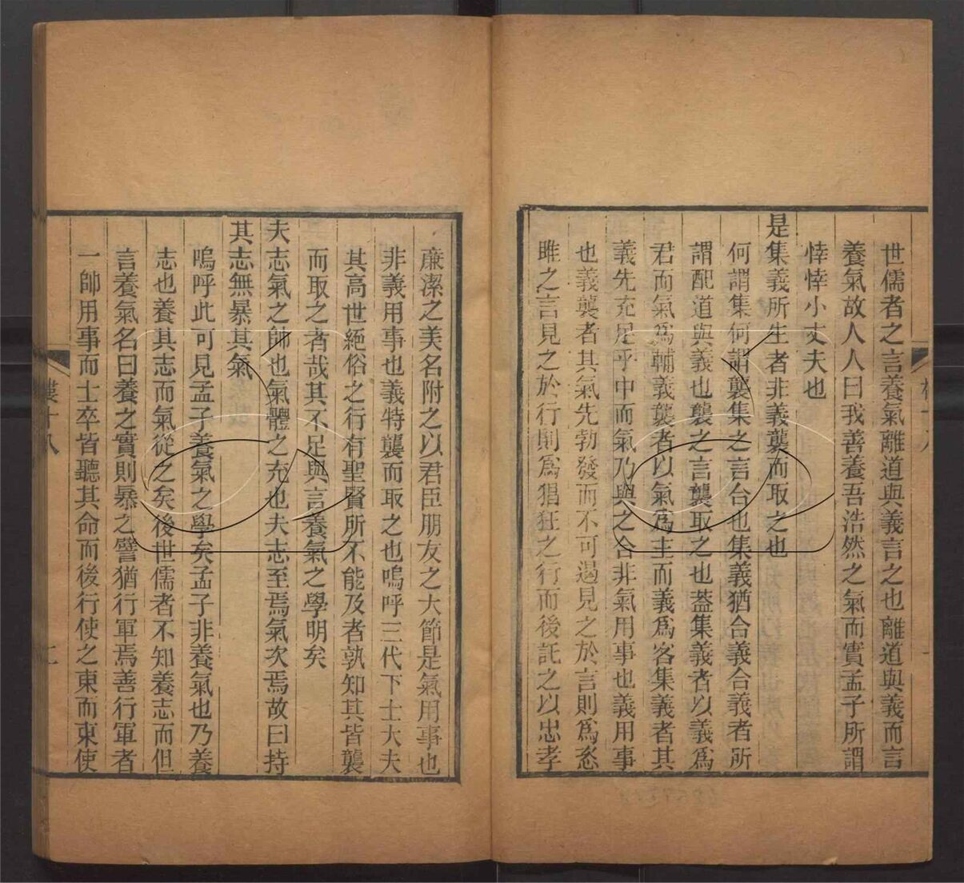 世儒者之言養氣離道與義言之也離道與義而言
養氣故人人曰我善養吾浩然之氣而實孟子所謂
悻悻小丈夫也
是集義所生者非義襲而取之也
何謂集何謂襲集之言合也集義猶合義合義者所
謂配道與義也襲之言襲取之也葢集義者以義爲
君而氣爲輔義襲者以氣爲主而義爲客集義者其
義先充足乎中而氣乃與之合非氣用事也義用事
也義襲者其氣先勃發而不可遏見之於言則爲恣
睢之言見之於行則爲猖狂之行而後託之以忠孝
廉潔之美名附之以君臣朋友之大節是氣用事也
非義用事也義特襲而取之也嗚呼三代下士大夫
其高世絕俗之行有聖賢所不能及者孰知其皆襲
而取之者哉其不足與言養氣之學明矣
夫志氣之帥也氣體之充也夫志至焉氣次焉故曰持
其志無暴其氣
嗚呼此可見孟子養氣之學矣孟子非養氣也乃養
志也養其志而氣從之矣後世儒者不知養志而但
言養氣名曰養之實則暴之譬猶行軍焉善行軍者
一帥用事而士卒皆聽其命而後行使之東而東使
樓十八
二